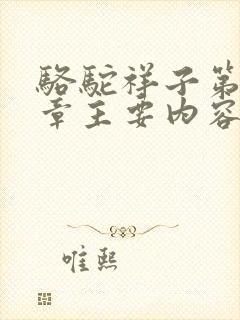 駱駝祥子第
章主要内容
唯熙